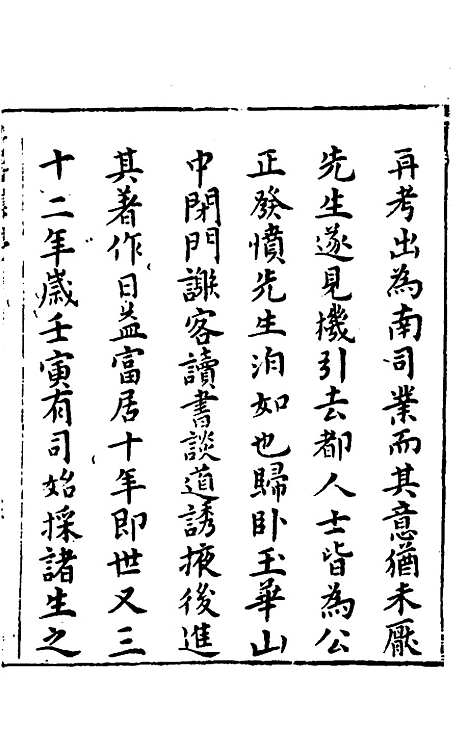 再考出為南司業而其意猶未厭
先生遂見機引去都人士皆為公
正發憤先生泊如也歸卧玉華山
中閉門謝客讀書談道誘掖後進
其著作日益富居十年即世又三
十二年歲壬寅有司始採諸生之